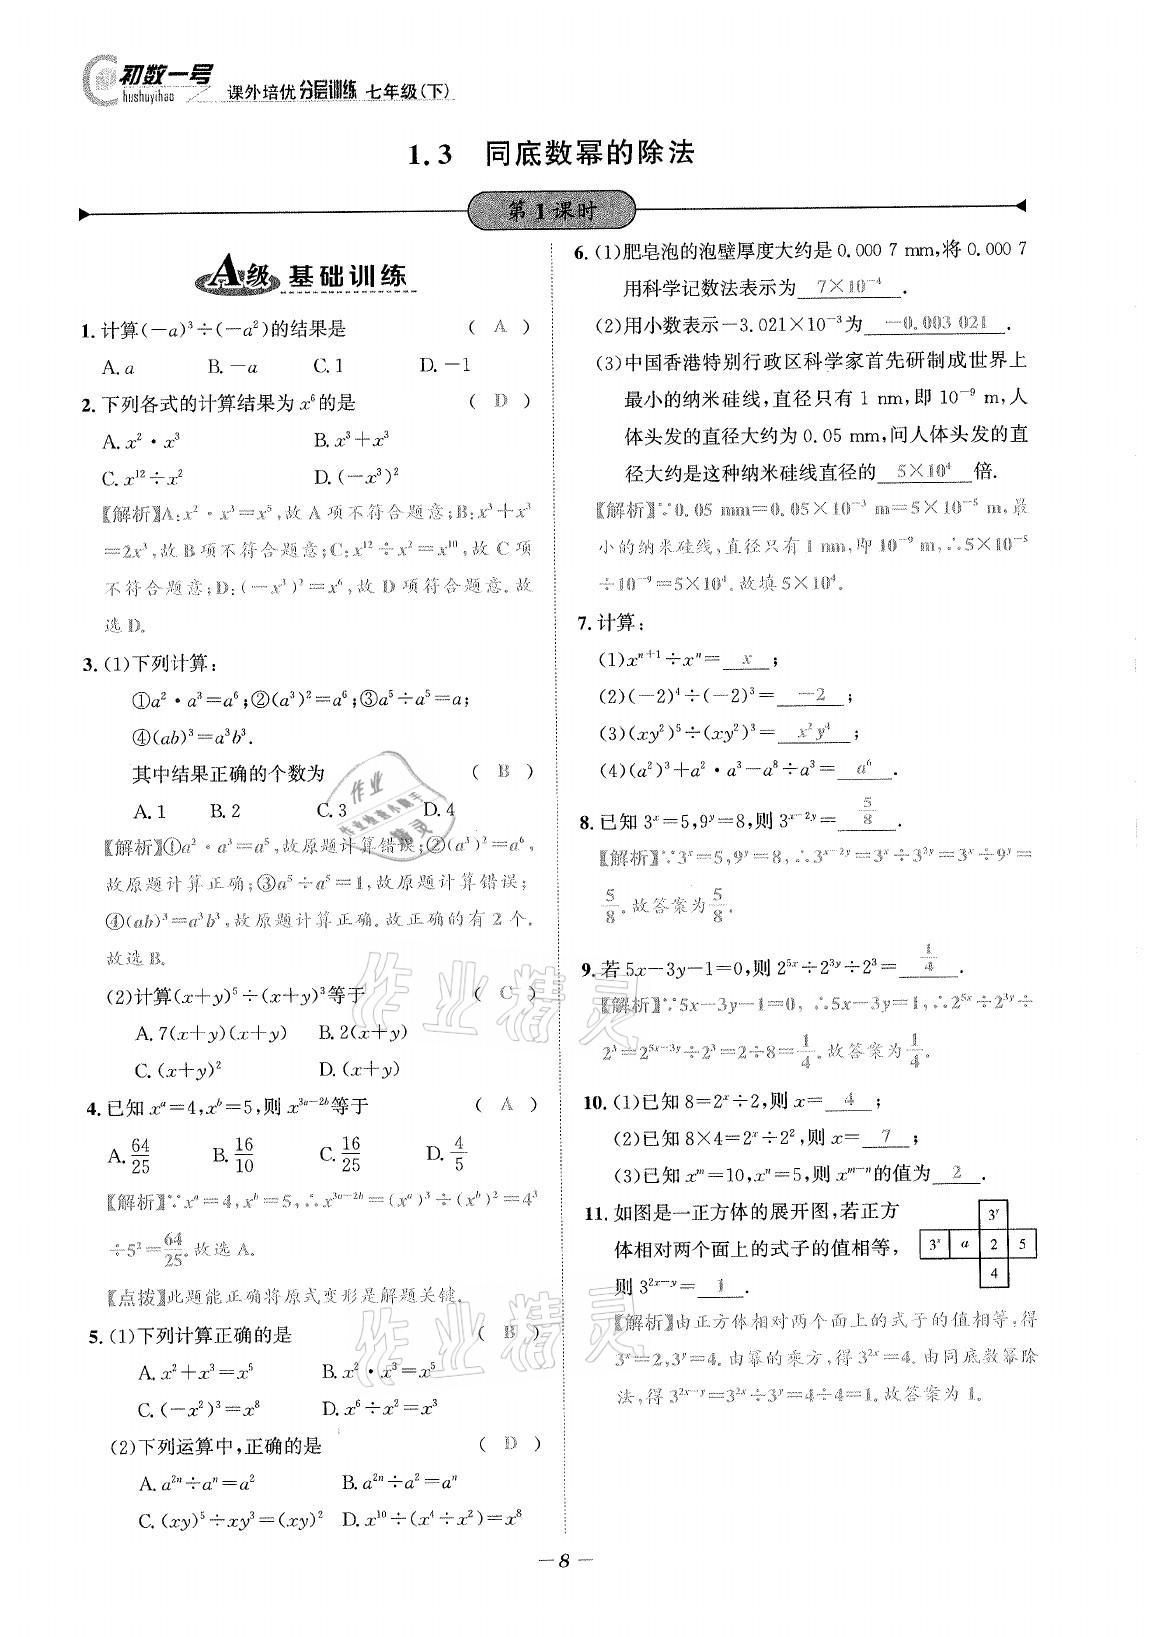 初数一号
Chushuyihao
课外培优分层训练 七年级(下)
1.3 同底数幂的除法
第1课时
A级 基础训练
1.计算(-a)³÷(-a²)的结果是 ( A )
A.a B.-a C.1 D.-1
2.下列各式的计算结果为 x⁶的是 ( D )
A.x²·x³ B.x³+x³
C.x¹²÷x² D.(-x³)²
【解析】A:x²·x³=x⁵,故A项不符合题意;B:x³+x³
=2x³,故B项不符合题意;C:x¹²÷x²=x¹⁰,故C项
不符合题意;D:(-x³)²=x⁶,故D项符合题意。故
选D。
3.(1)下列计算:
①a²·a³=a⁶;②(a³)²=a⁶;③a⁵÷a⁵=a;
④(ab)³=a³b³.
其中结果正确的个数为 ( B )
A.1 B.2 C.3 D.4
【解析】①a²·a³=a⁵,故原题计算错误;②(a³)²=a⁶,
故原题计算正确;③a⁵÷a⁵=1,故原题计算错误;
④(ab)³=a³b³,故原题计算正确。故正确的有2个.
故选B。
(2)计算(x+y)⁵÷(x+y)³等于 ( C )
A.7(x+y)(x+y) B.2(x+y)
C.(x+y)² D.(x+y)
4.已知 xᵃ=4,xᵇ=5,则 x³ᵃ⁻²ᵇ等于 ( A )
A.64/25 B.16/10 C.16/25 D.4/5
【解析】∵xᵃ=4,xᵇ=5,∴x³ᵃ⁻²ᵇ=(xᵃ)³÷(xᵇ)²=4³
÷5²=64/25。故选A。
【点拨】此题能正确将原式变形是解题关键。
5.(1)下列计算正确的是 ( B )
A.x²+x³=x⁵ B.x²·x³=x⁵
C.(-x²)³=x⁸ D.x⁶÷x²=x³
(2)下列运算中,正确的是 ( D )
A.a²ⁿ÷aⁿ=a² B.a²ⁿ÷a²=aⁿ
C.(xy)⁵÷xy³=(xy)² D.x¹⁰÷(x⁴÷x²)=x⁸
6.(1)肥皂泡的泡壁厚度大约是0.000 7 mm,将0.000 7
用科学记数法表示为 7×10⁻⁴ .
(2)用小数表示-3.021×10⁻³为 -0.003 021 .
(3)中国香港特别行政区科学家首先研制成世界上
最小的纳米硅线,直径只有1 nm,即10⁻⁹ m,人
体头发的直径大约为0.05 mm,问人体头发的直
径大约是这种纳米硅线直径的 5×10⁴ 倍.
【解析】∵0.05 mm=0.05×10⁻³ m=5×10⁻⁵ m,最
小的纳米硅线,直径只有1 nm,即10⁻⁹ m,∴5×10⁻⁵
÷10⁻⁹=5×10⁴。故填5×10⁴。
7.计算:
(1)xⁿ⁺¹÷xⁿ= x ;
(2)(-2)⁴÷(-2)³= -2 ;
(3)(xy²)⁵÷(xy²)³= x²y⁴ ;
(4)(a²)³+a²·a³-a⁸÷a³= a⁶ .
8.已知3ˣ=5,9ʸ=8,则3ˣ⁻²ʸ= 5/8 .
【解析】∵3ˣ=5,9ʸ=8,∴3ˣ⁻²ʸ=3ˣ÷3²ʸ=3ˣ÷9ʸ=
5/8。故答案为5/8。
9.若5x-3y-1=0,则2⁵ˣ÷2³ʸ÷2³= 1/4 .
【解析】∵5x-3y-1=0,∴5x-3y=1,∴2⁵ˣ÷2³ʸ÷
2³=2⁵ˣ⁻³ʸ÷2³=2÷8=1/4。故答案为1/4。
10.(1)已知8=2ˣ÷2,则x= 4 ;
(2)已知8×4=2ˣ÷2²,则x= 7 ;
(3)已知xᵐ=10,xⁿ=5,则xᵐ⁻ⁿ的值为 2 .
11.如图是一正方体的展开图,若正方
体相对两个面上的式子的值相等,
则3²ˣ⁻ʸ= 1 .
3ʸ
3ˣ a 2 5
4
【解析】由正方体相对两个面上的式子的值相等,得
3ˣ=2,3ʸ=4。由幂的乘方,得3²ˣ=4。由同底数幂除
法,得3²ˣ⁻ʸ=3²ˣ÷3ʸ=4÷4=1。故答案为1。
作业精灵
作业精灵
— 8 —